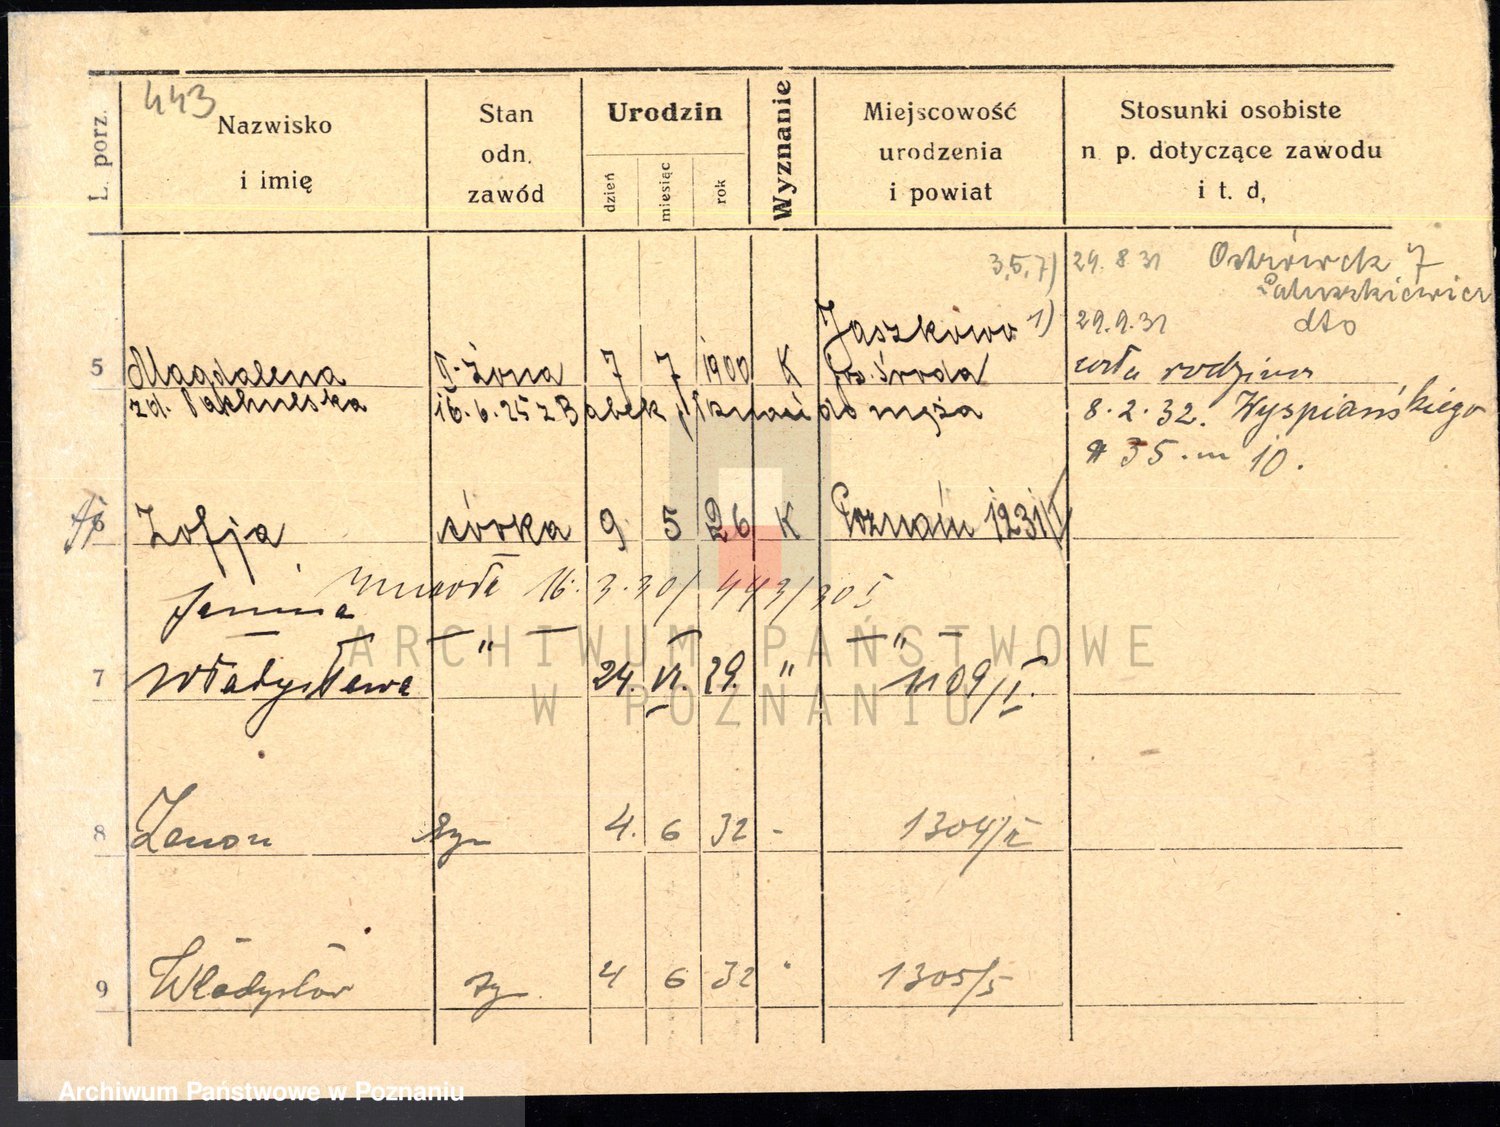 443
L. porz.
Nazwisko
i imię
Stan
odn.
zawód
Urodzin
dzień
miesiąc
rok
Wyznanie
Miejscowość
urodzenia
i powiat
Stosunki osobiste
n p. dotyczące zawodu
i t. d,
3,5,7) 29.8 31 Ostrówek 7
1) 29.9.31 dto
Jaszkowo
5 Magdalena Żona 7 7 1900 K Środa rodzina
zd. 16.6.25 z Babek do męża 8.2.32. Wyspiańskiego
35. m 10.
6 Zofja córka 9 5 26 K Poznań 1231/I
zmarła 16.3.30/ 443/30 I
Janina
7 Władysława " 24. VI. 29. " " 1109/I.
8 Zenon syn 4. 6 32 - 1304/II
9 Władysław sy 4 6 32 " 1305/5
ARCHIWUM PAŃSTWOWE
W POZNANIU
Archiwum Państwowe w Poznaniu